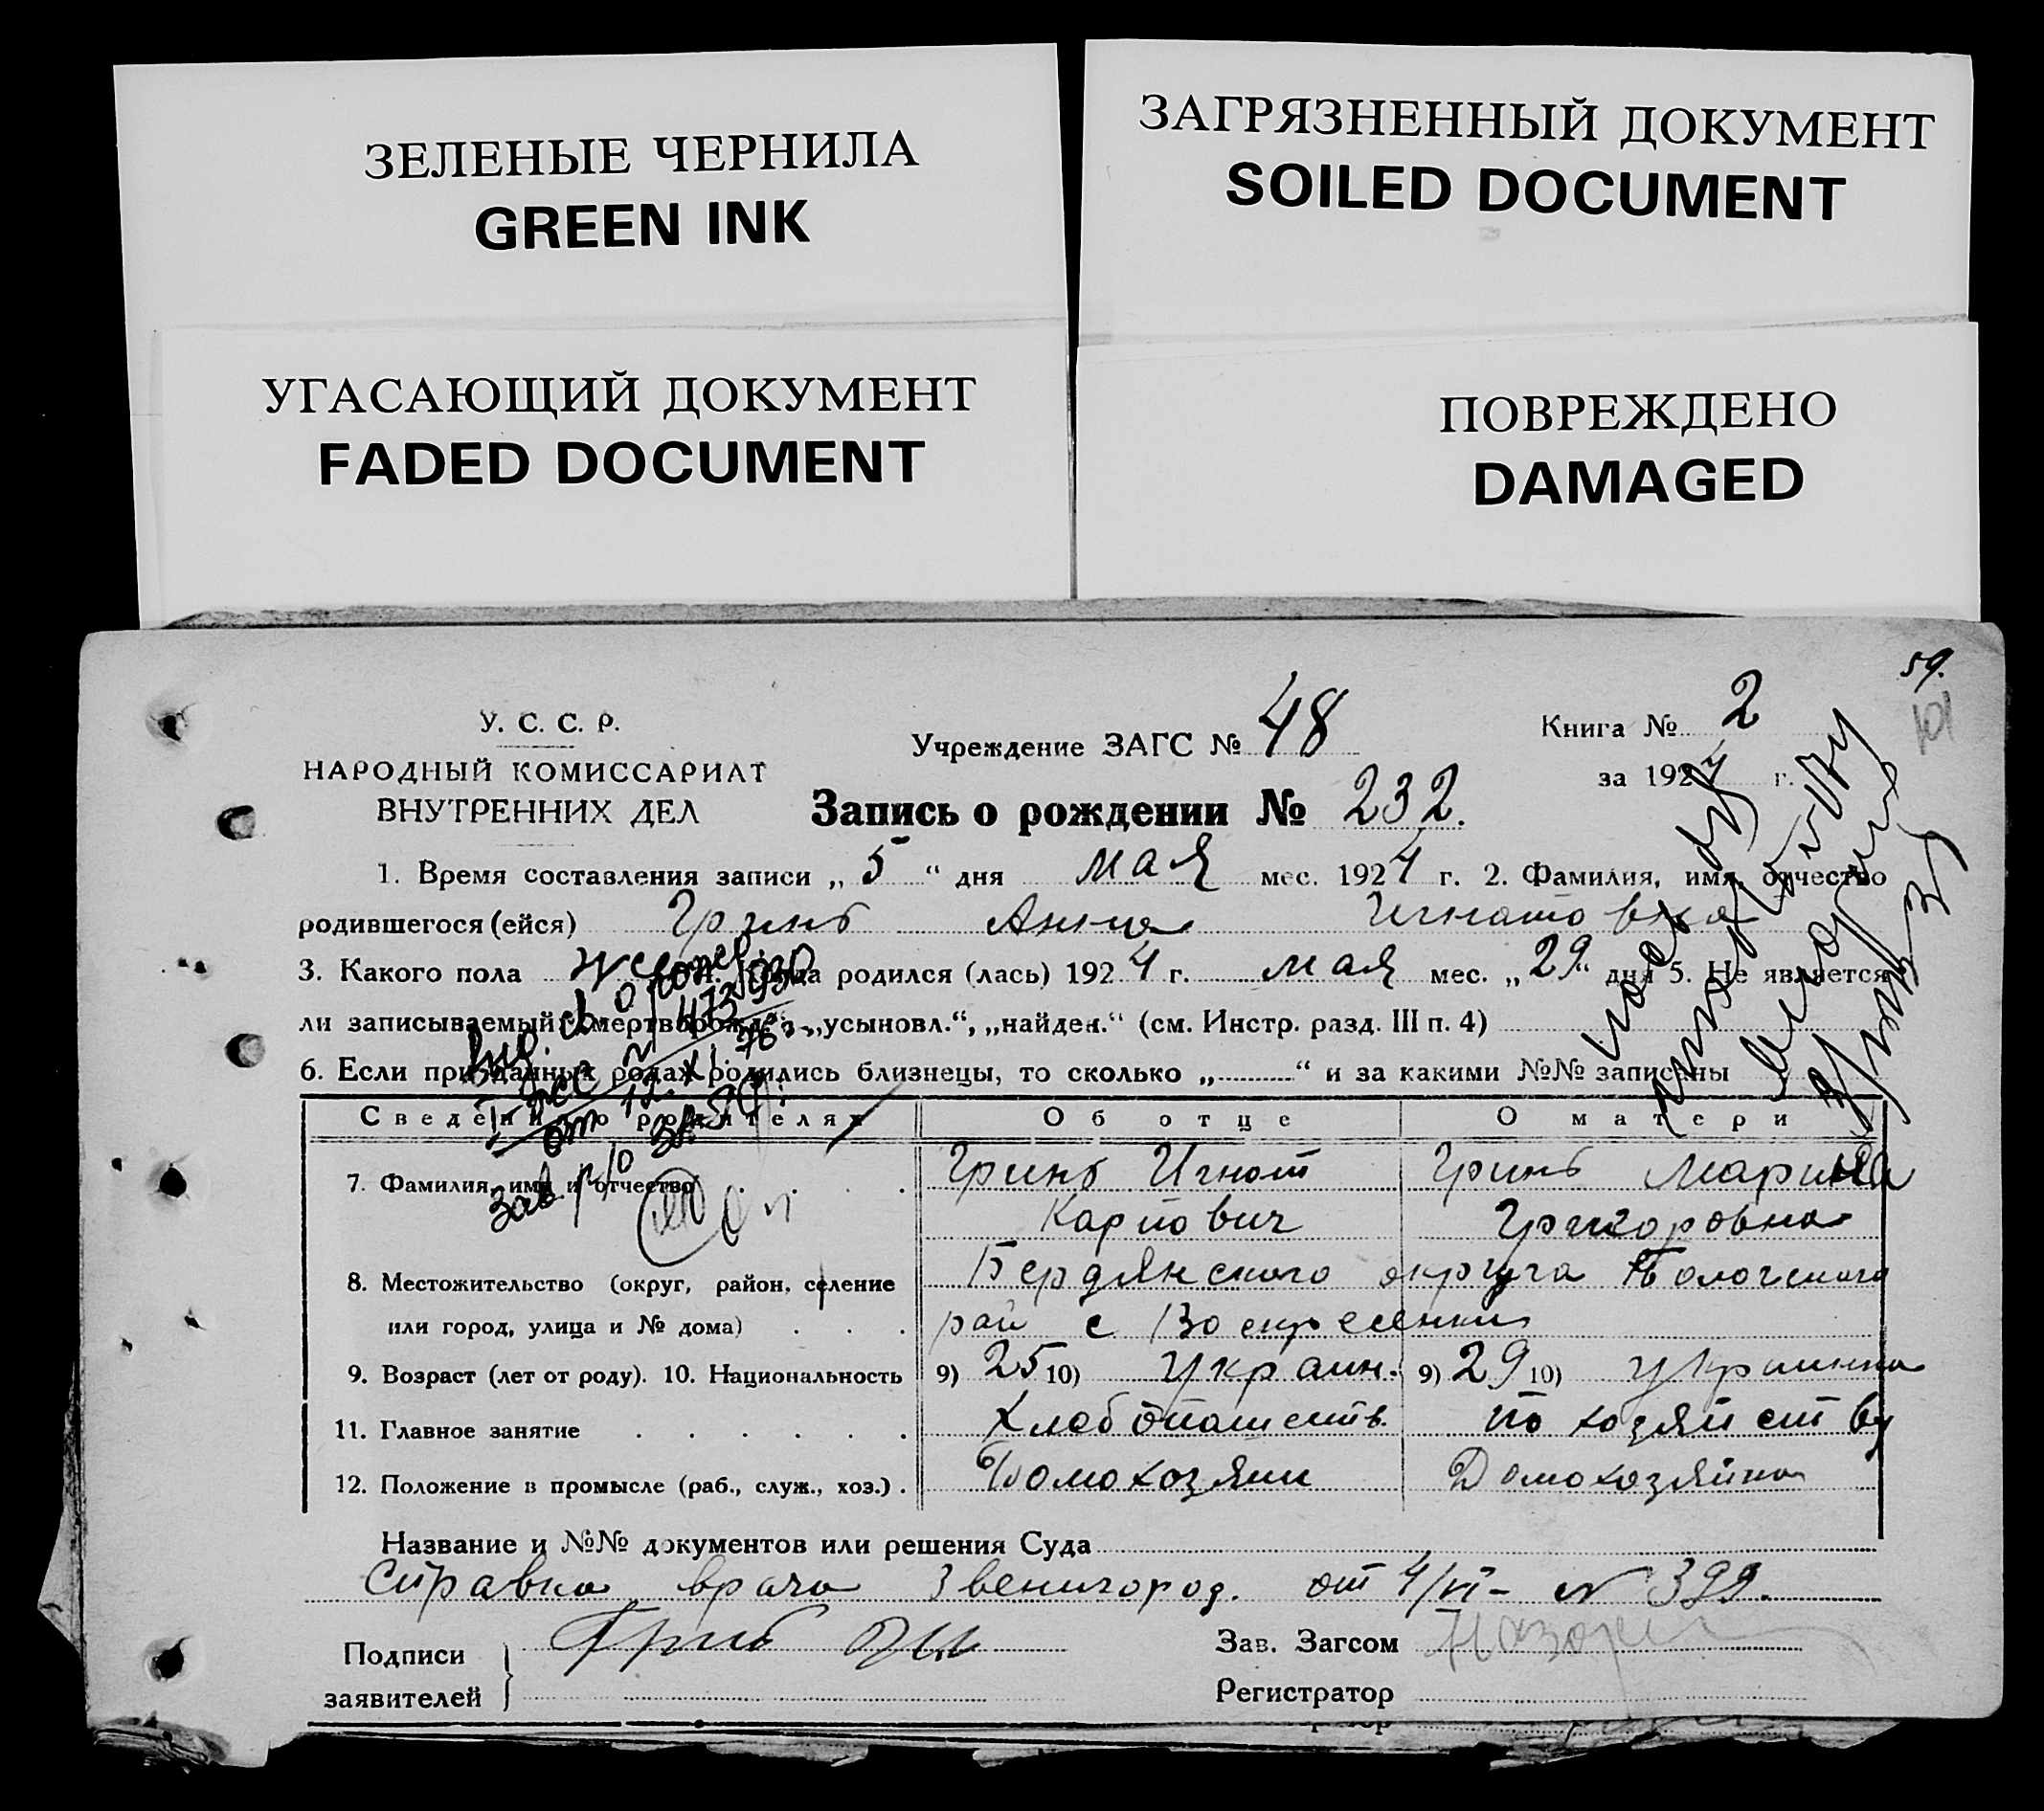 ЗЕЛЕНЫЕ ЧЕРНИЛА
GREEN INK
ЗАГРЯЗНЕННЫЙ ДОКУМЕНТ
SOILED DOCUMENT
УГАСАЮЩИЙ ДОКУМЕНТ
FADED DOCUMENT
ПОВРЕЖДЕНО
DAMAGED
59.
У. С. С. Р.
НАРОДНЫЙ КОМИССАРИАТ
ВНУТРЕННИХ ДЕЛ
Учреждение ЗАГС № 48
Книга № 2
за 1924 г.
Запись о рождении № 232.
1. Время составления записи „ 5 “ дня мая мес. 1924 г. 2. Фамилия, имя, отчество
родившегося (ейся) Гринь Анна Игнатовна
3. Какого пола жен. 4. Когда родился (лась) 1924 г. мая мес. „ 29 “ дня 5. Не является
ли записываемый: „мертворожд.“, „усыновл.“, „найден.“ (см. Инстр. разд. III п. 4)
6. Если при данных родах родились близнецы, то сколько „ “ и за какими №№ записаны
Выд. св. о рожд.
от 12.XI.76 г.
Сведения о родителях Об отце О матери
7. Фамилия, имя и отчество Гринь Игнат Гринь Марина
Карпович Григоровна
8. Местожительство (округ, район, селение Бердянского округа Пологского
или город, улица и № дома) рай с Воскресенки
9. Возраст (лет от роду). 10. Национальность 9) 25 10) Украин. 9) 29 10) украинка
11. Главное занятие Хлебопашеств. по хозяйству
12. Положение в промысле (раб., служ., хоз.) Домохозяин Домохозяйка
Название и №№ документов или решения Суда
Справка врача Звенигород. от 4/VI- № 399.
Подписи Гринь
заявителей
Зав. Загсом
Регистратор